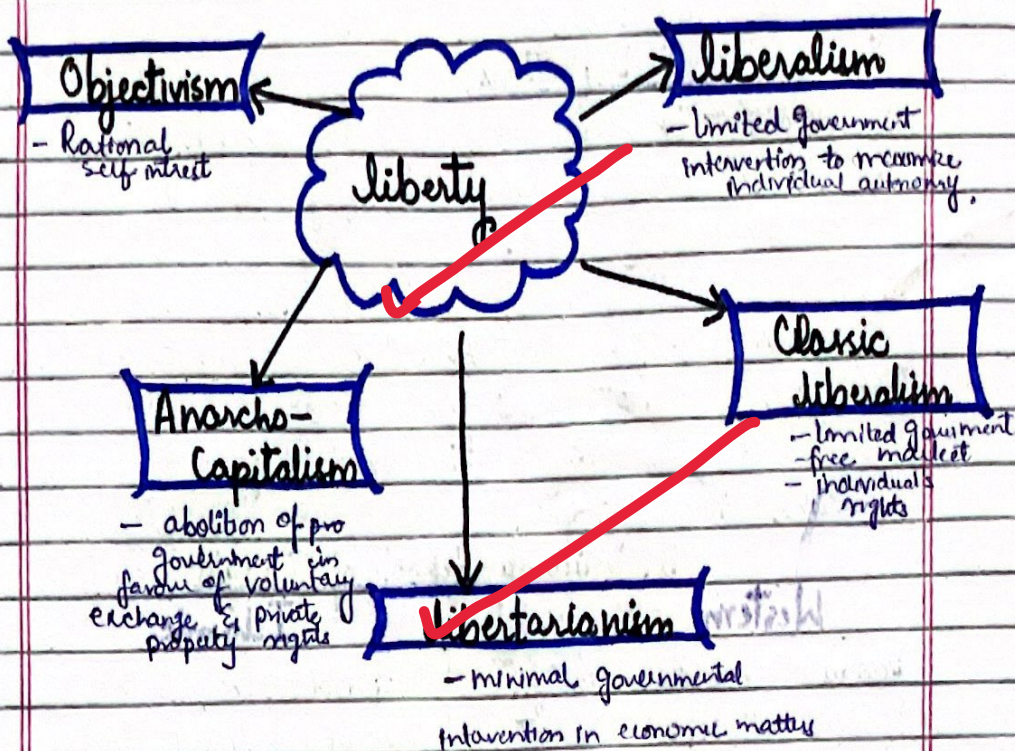 Objectivism
- Rational
self intrest
liberty
liberalism
- limited government
intervertion to maximize
individual autonomy.
Classic
liberalism
- limited gouvrment
- free market
- individual's
rights
Anarcho-
Capitalism
- abolition of pro
government in
favour of voluntary
exchange & private
property rights
libertarianism
- minimal governmental
intavention in economic matters